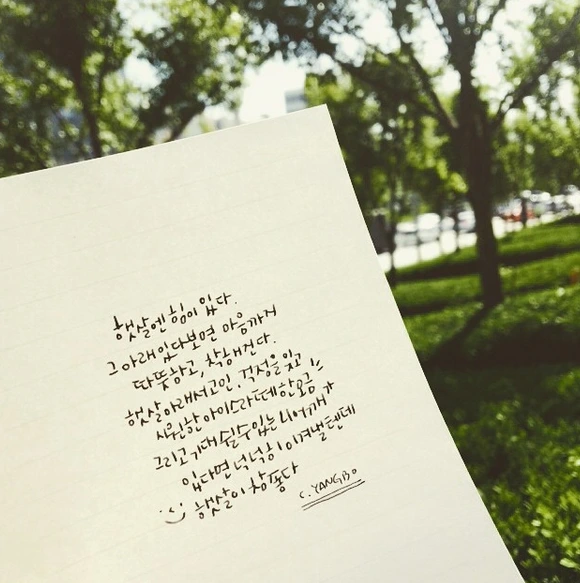 햇살엔 힘이 있다.
그 아래 있다보면 마음까지
따뜻하고, 착해진다.
햇살아래서 고민, 걱정을 잊고
시원한 아이스라떼 한 모금
그리고 기대 쉴 수 있는 니 어깨
있다면 넉넉히 이겨낼텐데
햇살이 참 좋다
C. YANGBO